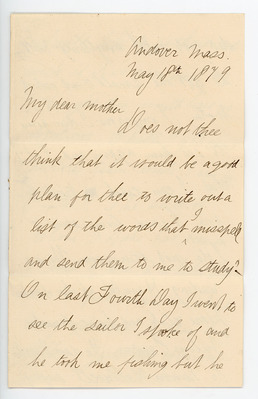 Andover Mass.
May 18th 1879
My dear mother
Does not thee
think that it would be a good
plan for thee to write out a
list of the words that I misspell
and send them to me to study?
On last Fourth Day I went to
see the sailor I spoke of and
he took me fishing but he